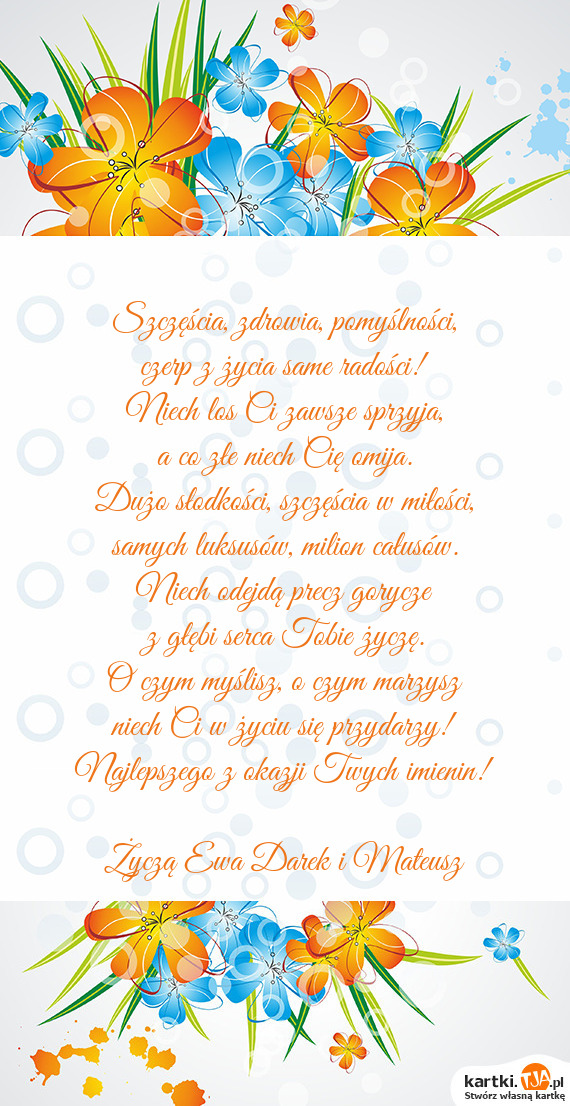 Szczęścia, zdrowia, pomyślności,
czerp z życia same radości!
Niech los Ci zawsze sprzyja,
a co złe niech Cię omija.
Dużo słodkości, szczęścia w miłości,
samych luksusów, milion całusów.
Niech odejdą precz gorycze
z głębi serca Tobie życzę.
O czym myślisz, o czym marzysz
niech Ci w życiu się przydarzy!
Najlepszego z okazji Twych imienin!
Życzą Ewa Darek i Mateusz
kartki.TJA.pl
Stwórz własną kartkę